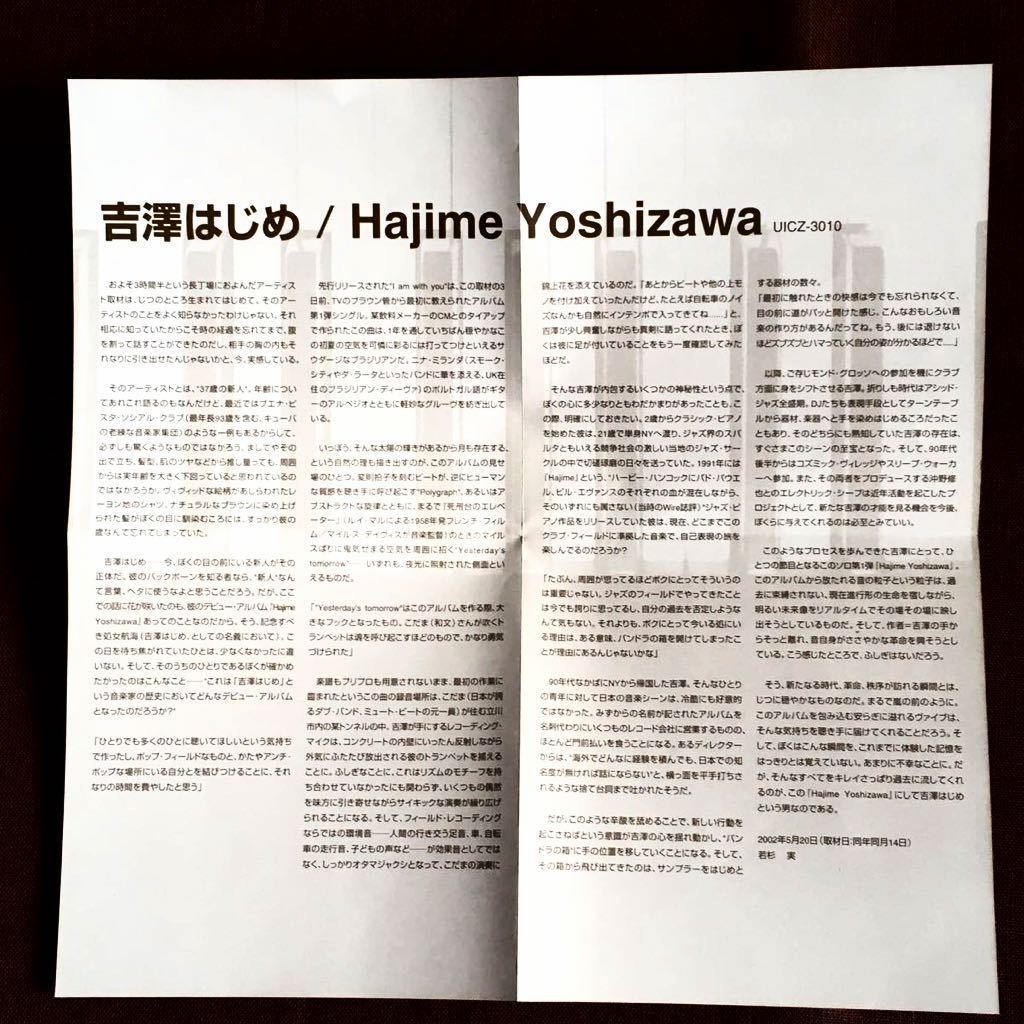 吉澤はじめ / Hajime Yoshizawa UICZ-3010
およそ3時間半という長丁場におよんだアーティス
ト取材は、じつのところ生まれてはじめて、そのアー
ティストのことをよく知らなかったわけじゃない。それ
相応に知っていたからこそ時の経過を忘れてまで、腹
を割って話すことができたのだし、相手の胸の内もそ
れなりに引き出せたんじゃないかと、今、実感している。
そのアーティストとは、"37歳の新人"。年齢につい
てあれこれ語るのもなんだけど、最近ではブエナ・ビ
スタ・ソシアル・クラブ(最年長93歳を含む、キューバ
の老練な音楽家集団)のような一例もあるからして、
必ずしも驚くようなものではなかろう。ましてやその
出で立ち、髪型、肌のツヤなどから推し量っても、周囲
からは実年齢を大きく下回っていると思われているの
ではなかろうか。ヴィヴィッドな絵柄があしらわれたレ
ーヨン地のシャツ、ナチュラルなブラウンに染め上げ
られた髪がぼくの目に馴染むころには、すっかり彼の
歳なんて忘れてしまっていた。
吉澤はじめ──今、ぼくの目の前にいる新人がその
正体だ。彼のバックボーンを知る者なら、"新人"なん
て言葉、ヘタに使うなよと思うことだろう。だが、ここ
での話に花が咲いたのも、彼のデビュー・アルバム『Hajime
Yoshizawa』あってのことなのだから、そう、記念すべ
き処女航海(吉澤はじめ、としての名義において)。こ
の日を待ち焦がれていたひとは、少なくなかったに違
いない。そして、そのうちのひとりであるぼくが確かめ
たかったのはこんなこと──"これは「吉澤はじめ」と
いう音楽家の歴史においてどんなデビュー・アルバム
となったのだろうか?"
「ひとりでも多くのひとに聴いてほしいという気持ち
で作ったし、ポップ・フィールドなものと、かたやアンチ・
ポップな場所にいる自分とを結びつけることに、それ
なりの時間を費やしたと思う」
先行リリースされた"I am with you"は、この取材の3
日前、TVのブラウン管から最初に教えられたアルバム
第1弾シングル。某飲料メーカーのCMとのタイアップ
で作られたこの曲は、1年を通していちばん穏やかなこ
の初夏の空気を可憐に彩るには打ってつけといえるサ
ウダージなブラジリアンだ。ニナ・ミランダ(スモーク・
シティやダ・ラータといったバンドに華を添える、UK在
住のブラジリアン・ディーヴァ)のポルトガル語がギタ
ーのアルペジオとともに軽妙なグルーヴを紡ぎ出して
いる。
いっぽう、そんな太陽の輝きがあるから月も存在する、
という自然の理も描き出すのが、このアルバムの見せ
場のひとつ。変則拍子を刻むビートが、逆にヒューマン
な質感を聴き手に呼び起こす"Polygraph"、あるいはア
ブストラクトな旋律とともに、まるで『死刑台のエレベ
ーター』(ルイ・マルによる1958年発フレンチ・フィル
ム/マイルス・デイヴィスが音楽監督)のときのマイル
スばりに鬼気せまる空気を周囲に招く"Yesterday's
tomorrow"── いずれも、夜光に照射された側面とい
えるものだ。
「"Yesterday's tomorrow"はこのアルバムを作る際、大
きなフックとなったもの。こだま(和文)さんが吹くト
ランペットは魂を呼び起こすほどのもので、かなり勇気
づけられた」
楽譜もプリプロも用意されないまま、最初の作業に
臨まれたというこの曲の録音場所は、こだま(日本が誇
るダブ・バンド、ミュート・ビートの元一員)が住む立川
市内の某トンネルの中。吉澤が手にするレコーディング・
マイクは、コンクリートの内壁にいったん反射しながら
外気にふたたび放出される彼のトランペットを捕える
ことに。ふしぎなことに、これはリズムのモチーフを持
ち合わせていなかったにも関わらず、いくつもの偶然
を味方に引き寄せながらサイキックな演奏が繰り広げ
られることになる。そして、フィールド・レコーディング
ならではの環境音──人間の行き交う足音、車、自転
車の走行音、子どもの声など──が効果音としてでは
なく、しっかりオタマジャクシとなって、こだまの演奏に
錦上花を添えているのだ。「あとからビートや他の上モ
ノを付け加えていったんだけど、たとえば自転車のノイ
ズなんかも自然にインテンポで入ってきてね……」と、
吉澤が少し興奮しながらも真剣に語ってくれたとき、ぼ
くは彼に足が付いていることをもう一度確認してみた
ほどだ。
そんな吉澤が内包するいくつかの神秘性という点で、
ぼくの心に多少なりともわだかまりがあったことも、こ
の際、明確にしておきたい。2歳からクラシック・ピアノ
を始めた彼は、21歳で単身NYへ渡り、ジャズ界のスパ
ルタともいえる競争社会の激しい当地のジャズ・サー
クルの中で切磋琢磨の日々を送っていた。1991年には
『Hajime』という、"ハービー・ハンコックにバド・パウエ
ル、ビル・エヴァンスのそれぞれの血が混在しながら、
そのいずれにも属さない(当時のWire誌評)"ジャズ・ピ
アノ作品をリリースしていた彼は、現在、どこまでこの
クラブ・フィールドに準拠した音楽で、自己表現の旅を
楽しんでるのだろうか?
「たぶん、周囲が思ってるほどボクにとってそういうの
は重要じゃない。ジャズのフィールドでやってきたこと
は今でも誇りに思ってるし、自分の過去を否定しような
んて気もない。それよりも、ボクにとって今いる処にい
る理由は、ある意味、パンドラの箱を開けてしまったこ
とが理由にあるんじゃないかな」
90年代なかばにNYから帰国した吉澤。そんなひとり
の青年に対して日本の音楽シーンは、冷酷にも好意的
ではなかった。みずからの名前が記されたアルバムを
名刺代わりにいくつものレコード会社に営業するものの、
ほとんど門前払いを食うことになる。あるディレクター
からは、"海外でどんなに経験を積んでも、日本での知
名度が無ければ話にならない"と、横っ面を平手打ちさ
れるような捨て台詞まで吐かれたそうだ。
だが、このような辛酸を舐めることで、新しい行動を
起こさねばという意識が吉澤の心を揺れ動かし、"パン
ドラの箱"に手の位置を移していくことになる。そして、
その箱から飛び出てきたのは、サンプラーをはじめと
する器材の数々。
「最初に触れたときの快感は今でも忘れられなくて、
目の前に道がパッと開けた感じ。こんなおもしろい音
楽の作り方があるんだってね。もう、後には退けない
ほどズブズブとハマっていく自分の姿が分かるほどで……」
以降、ご存じモンド・グロッソへの参加を機にクラブ
方面に身をシフトさせる吉澤。折りしも時代はアシッド・
ジャズ全盛期。DJたちも表現手段としてターンテーブ
ルから器材、楽器へと手を染めはじめるころだったこ
ともあり、そのどちらにも熟知していた吉澤の存在は、
すぐさまこのシーンの至宝となった。そして、90年代
後半からはコズミック・ヴィレッジやスリープ・ウォーカ
ーへ参加。また、その両者をプロデュースする沖野修
也とのエレクトリック・シープは近年活動を起こしたプ
ロジェクトとして、新たな吉澤の才能を見る機会を今後、
ぼくらに与えてくれるのは必至とみていい。
このようなプロセスを歩んできた吉澤にとって、ひ
とつの節目となるこのソロ第1弾『Hajime Yoshizawa』。
このアルバムから放たれる音の粒子という粒子は、過
去に束縛されない、現在進行形の生命を宿しながら、
明るい未来像をリアルタイムでその場その場に映し
出そうとしているものだ。そして、作者=吉澤の手か
らそっと離れ、音自身がささやかな革命を興そうとし
ている。こう感じたところで、ふしぎはないだろう。
そう、新たなる時代、革命、秩序が訪れる瞬間とは、
じつに穏やかなものなのだ。まるで嵐の前のように。
このアルバムを包み込む安らぎに溢れるヴァイブは、
そんな気持ちを聴き手に届けてくれることだろう。そ
して、ぼくはこんな瞬間を、これまでに体験した記憶を
はっきりとは覚えていない。あまりに不幸なことに。だ
が、そんなすべてをキレイさっぱり過去に流してくれ
るのが、この『Hajime Yoshizawa』にして吉澤はじめ
という男なのである。
2002年5月20日(取材日:同年同月14日)
若杉 実